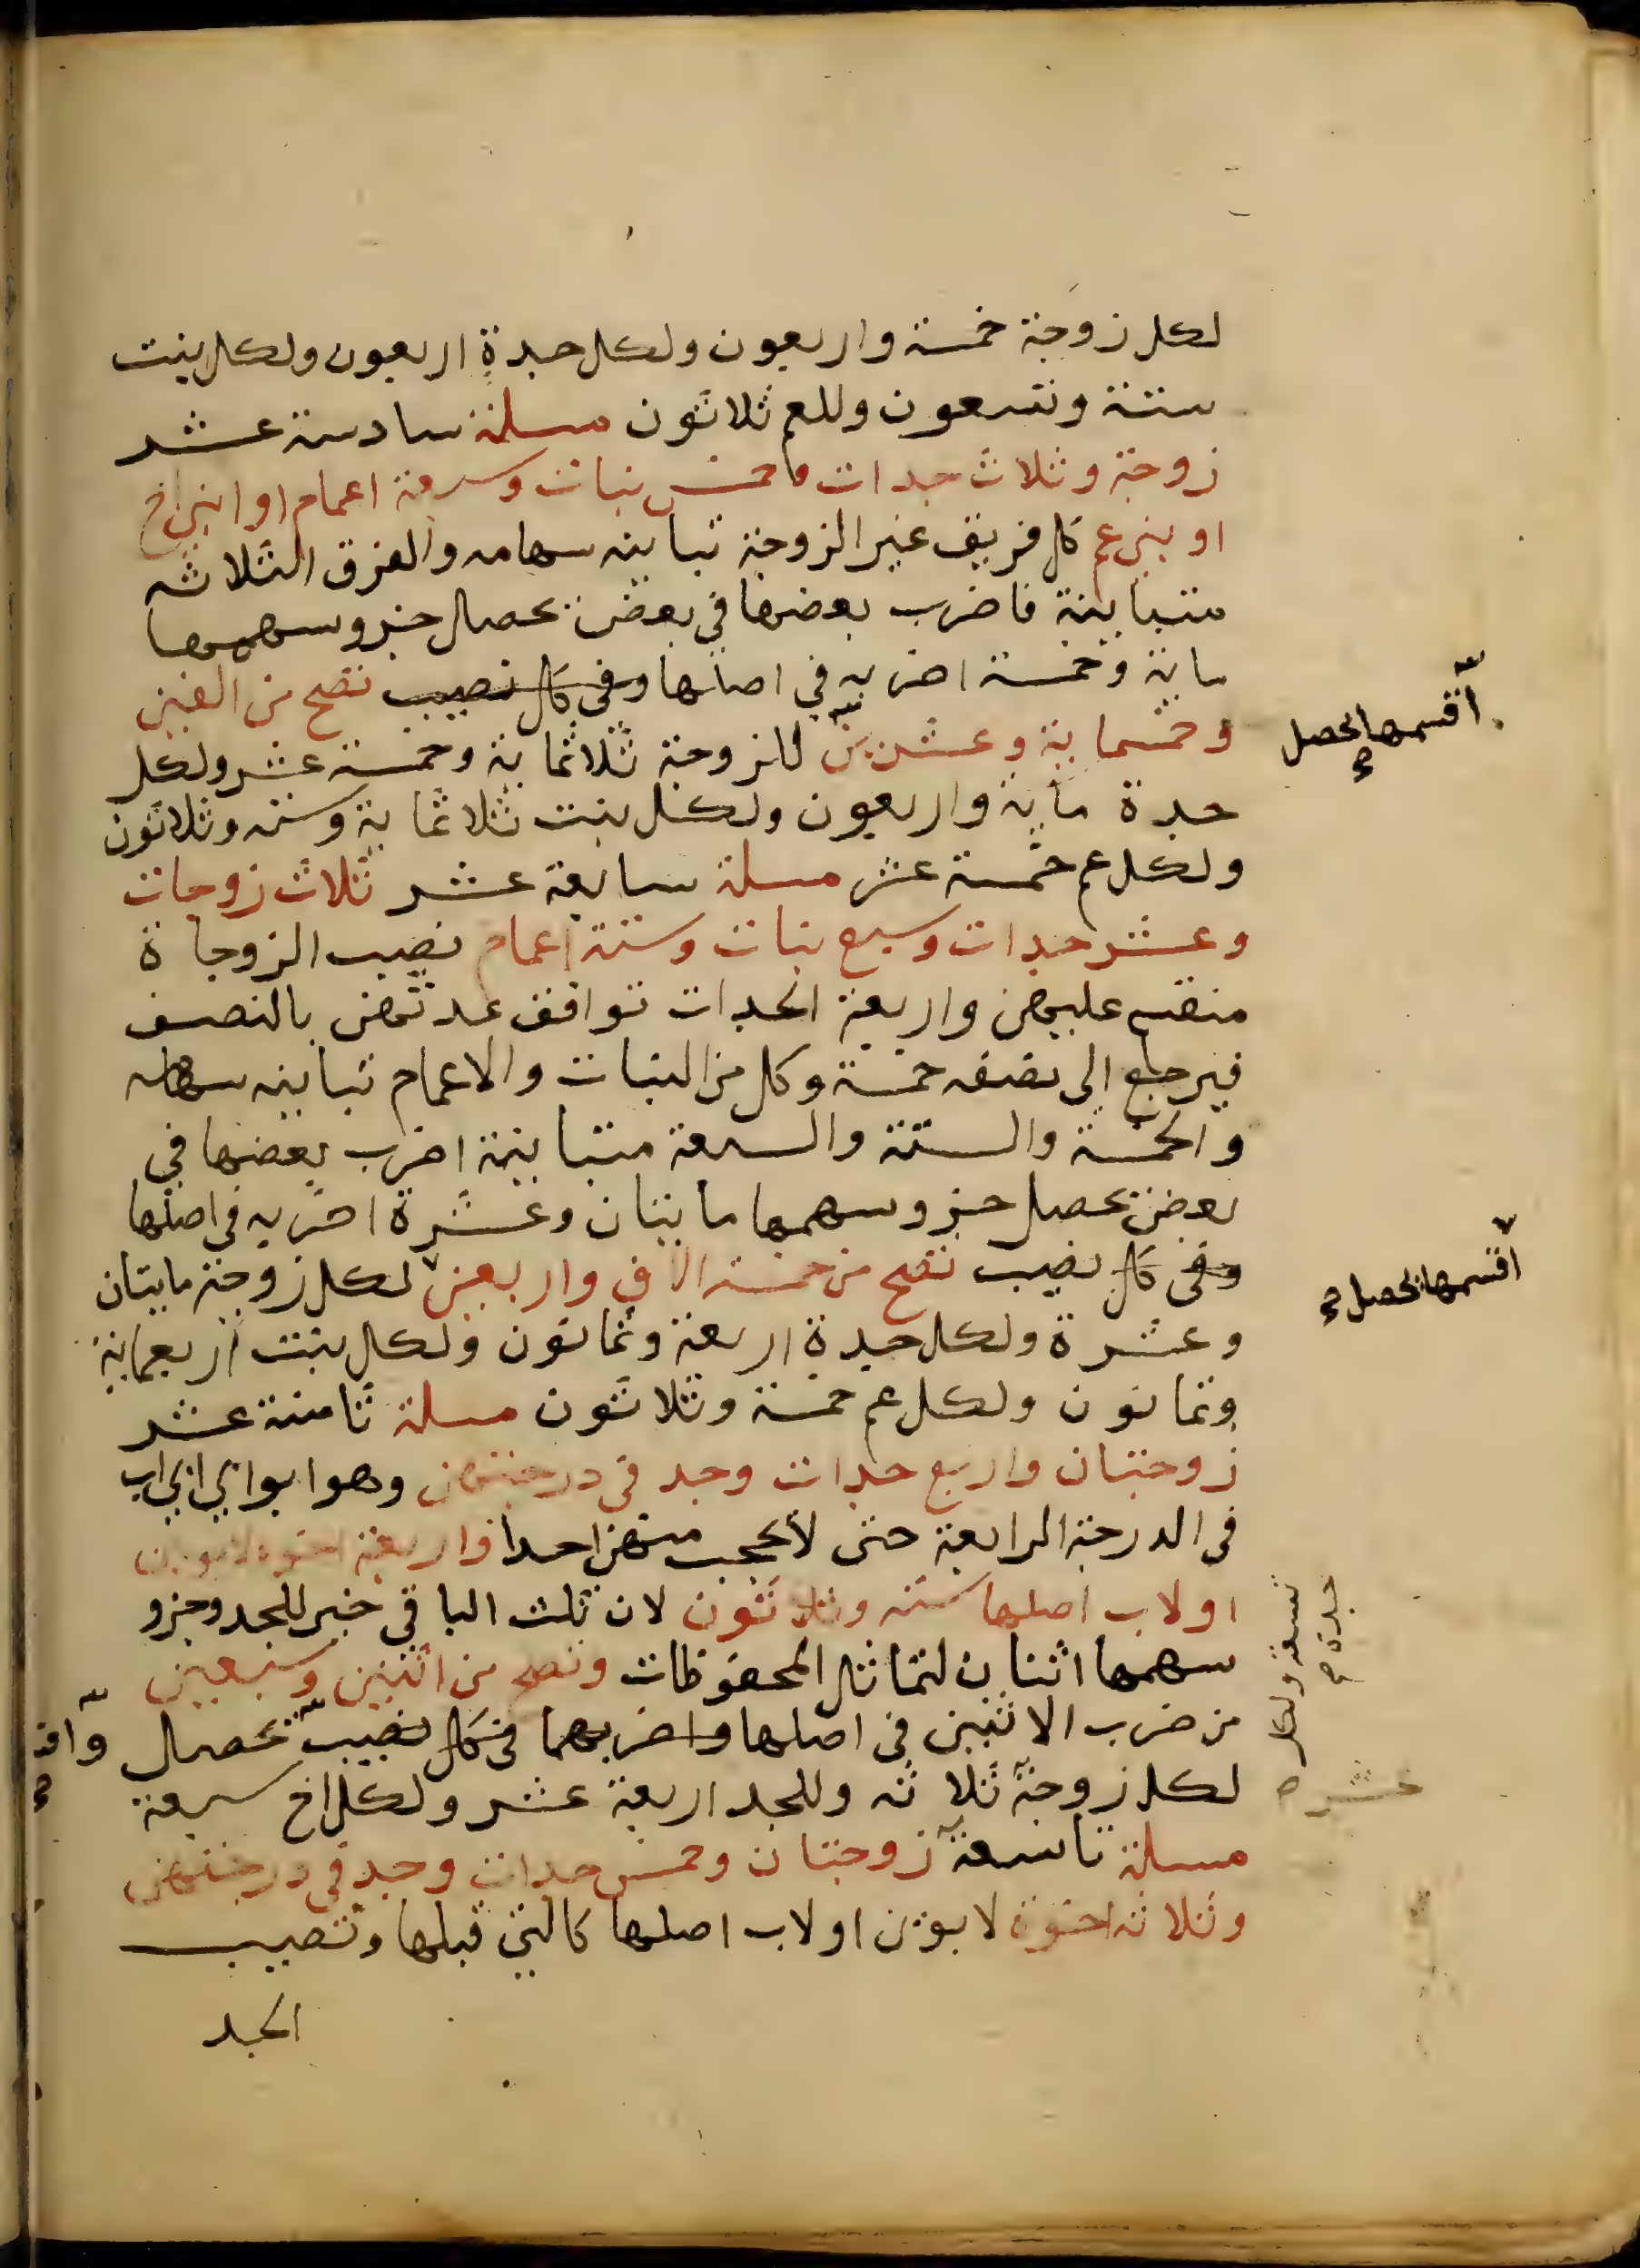 لكل زوجة خمسة واربعون ولكل جدة اربعون ولكل بنت
ستة وتسعون وللعم ثلاثون مسلة سادسة عشر
زوجة وثلاث جدات وخمس بنات وسبعة اعمام او ابن اخ
او بني عم كل فريق غير الزوجة تباينه سهامه والفرق الثلاثه
متباينة فاضرب بعضها في بعض يحصل جزو سهمها
ماية وخمسة اضربه في اصلها وفي كل نصيب تصح من الفين
وخمسماية وعشرين للزوجة ثلاثماية وخمسة عشر ولكل
جدة ماية واربعون ولكل بنت ثلاثماية وسته وثلاثون
ولكل عم خمسة عشر مسلة سابعة عشر ثلاث زوجات
وعشر جدات وسبع بنات وستة اعمام نصيب الزوجاة
منقسم عليهن واربعة الجدات توافق عدتهن بالنصف
فيرجع الى نصفه خمسة وكل من البنات والاعمام تباينه سهامه
والخمسة والستة والسبعة متباينة اضرب بعضها في
بعض يحصل جزو سهمها مايتان وعشرة اضربه في اصلها
وفي كل نصيب تصح من خمسة الاف واربعين لكل زوجة مايتان
وعشرة ولكل جدة اربعة وثمانون ولكل بنت اربعماية
وثمانون ولكل عم خمسة وثلاثون مسلة ثامنة عشر
زوجتان واربع جدات وجد في درجتهن وهو ابو ابي ابي اب
في الدرجة الرابعة حتى لا يحجب منهن احدا واربعة اخوة لابوين
او لاب اصلها سته وثلاثون لان ثلث الباقي خير للجد وجزو
سهمها اثنان لتماثل المحفوظات وتصح من اثنين وسبعين
من ضرب الاثنين في اصلها واضربهما في كل نصيب يحصل
لكل زوجة ثلاثه وللجد اربعة عشر ولكل اخ سبعة
مسلة تاسعة زوجتان وخمس جدات وجد في درجتهن
وثلاثه اخوة لابوين او لاب اصلها كالتي قبلها ونصيب
الجد
اقسمها يحصل
اقسمها يحصل
تسعة ولكل
جدة
عشره